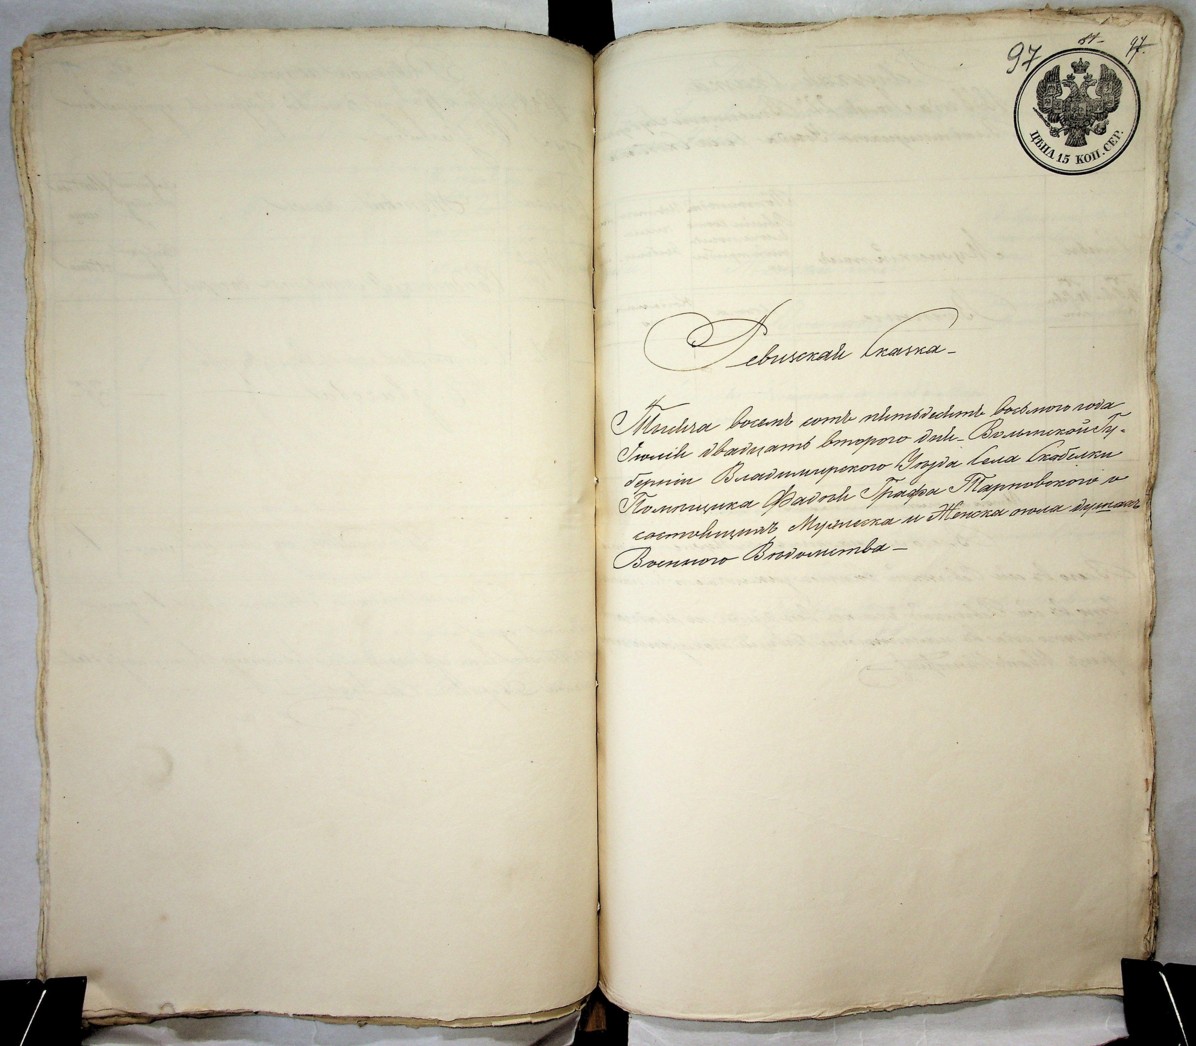 97
97.
ЦѢНА 15 КОП. СЕР.
Ревизская Сказка
Тысяча восемь сотъ пятьдесятъ восьмого года
Іюля двадцать второго дня Волынской Гу-
берніи Владимирского Уѣзда Села Скабелки
Помѣщика Фадѣя Графа Тарновского о
состоящихъ Мужеска и Женска пола душахъ
Военного Вѣдомства